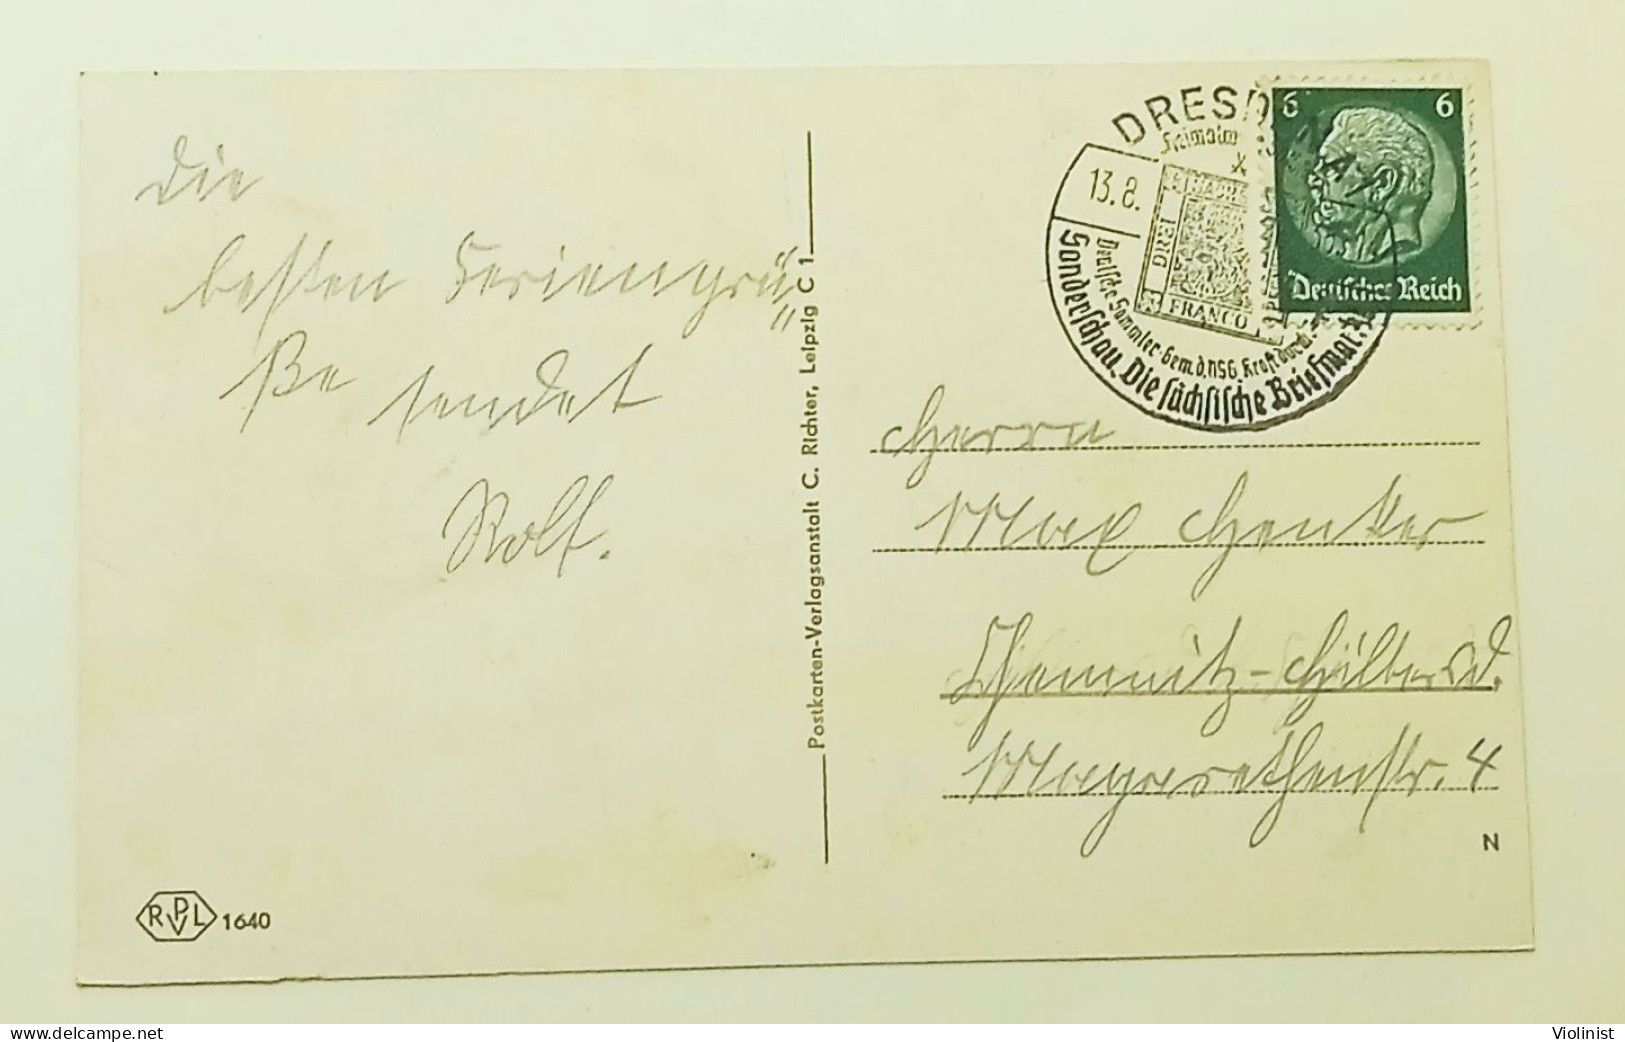 Die
besten Feriengrü-
ße sendet
Rolf.
RPVL 1640
Postkarten-Verlagsanstalt C. Richter, Leipzig C 1
DRESD
13.8.
FRANCO
Deutsche Sammler-Gem.d.NSG Kraft durch
Sonderschau. Die sächsische Briefmar
6 6
Deutsches Reich
Herrn
Max Henker
Chemnitz-Hilbersd.
Margarethenstr. 4
N
www.delcampe.net
Violinist